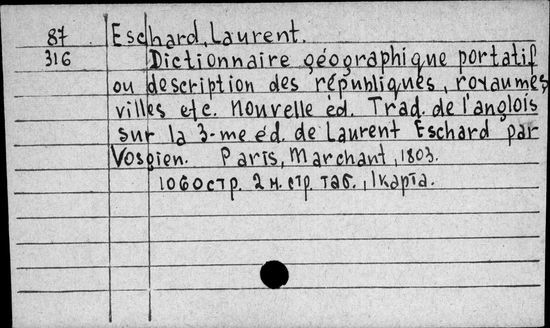 87 Eschard, Laurent.
316 Dictionnaire géographique portatif
ou description des républiques, royaumes
villes etc. Nouvelle éd. Trad. de l'anglois
sur la 3-me éd. de Laurent Eschard par
Vosgien. Paris, Marchant, 1803.
1060 стр. 2 н. стр. таб., 1 карта.